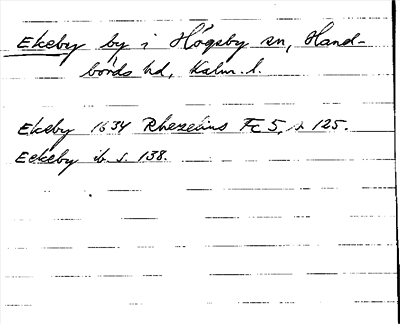 Ekeby by i Högsby sn, Hand-
börds hd, Kalm. l.
Ekeby 1634 Rhezelius Fc 5, s 125.
Eekeby ib. s. 138.